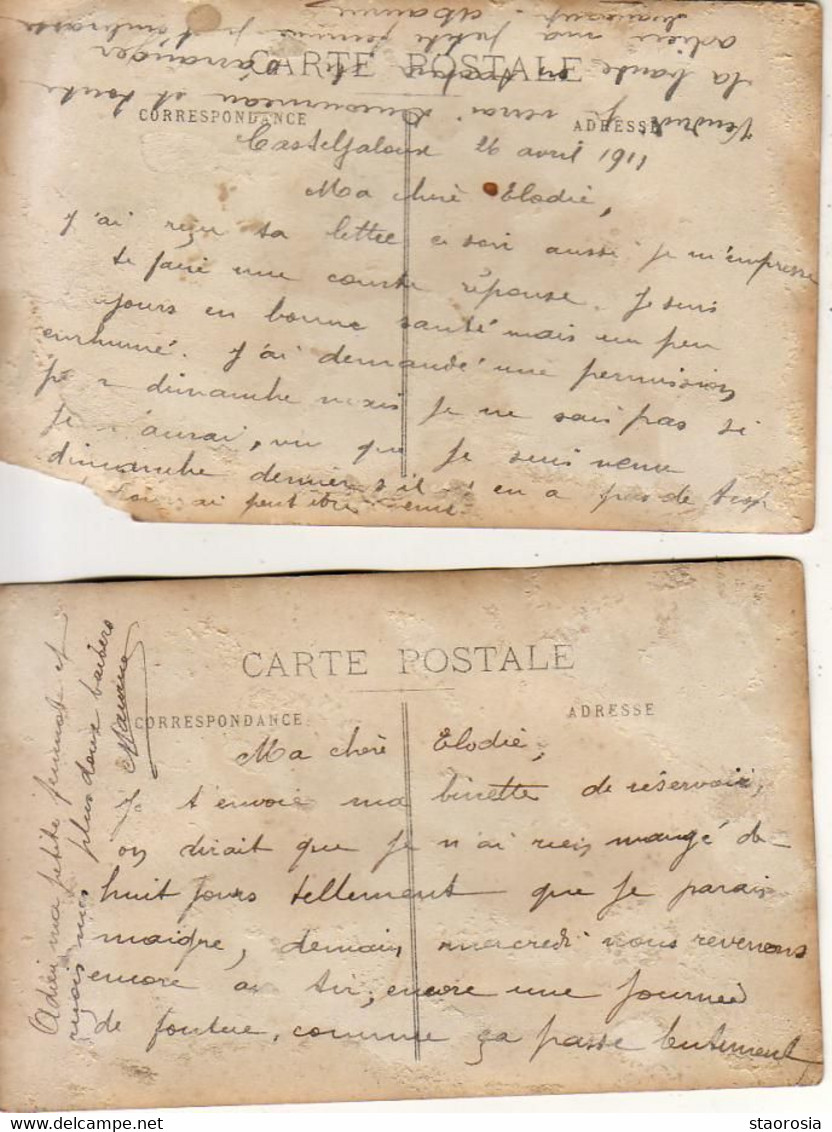 CARTE POSTALE
CORRESPONDANCE
ADRESSE
Casteljaloux 26 avril 1911
Ma chère Elodie,
J'ai reçu ta lettre ce soir aussi je m'empresse
te faire une courte réponse. Je suis
jours en bonne santé mais un peu
enrhumé. J'ai demandé une permission
dimanche mais je ne sais pas si
je l'aurai, vu que je suis venu
dimanche dernier s'il n'en a pas de trop
peut être
Vendredi je verrai et toute
la bande s'arranger
adieu ma petite femme je t'embrasse
beaucoup.
CARTE POSTALE
CORRESPONDANCE
ADRESSE
Ma chère Elodie,
Je t'envoie ma binette de réservoir,
on dirait que je n'ai rien mangé de
huit jours tellement que je parais
maigre, demain mercredi nous revenons
encore au tir, encore une journée
de foutue, comme ça passe lentement
Adieu ma petite femmote et
reçois mes plus doux baisers
staorosia